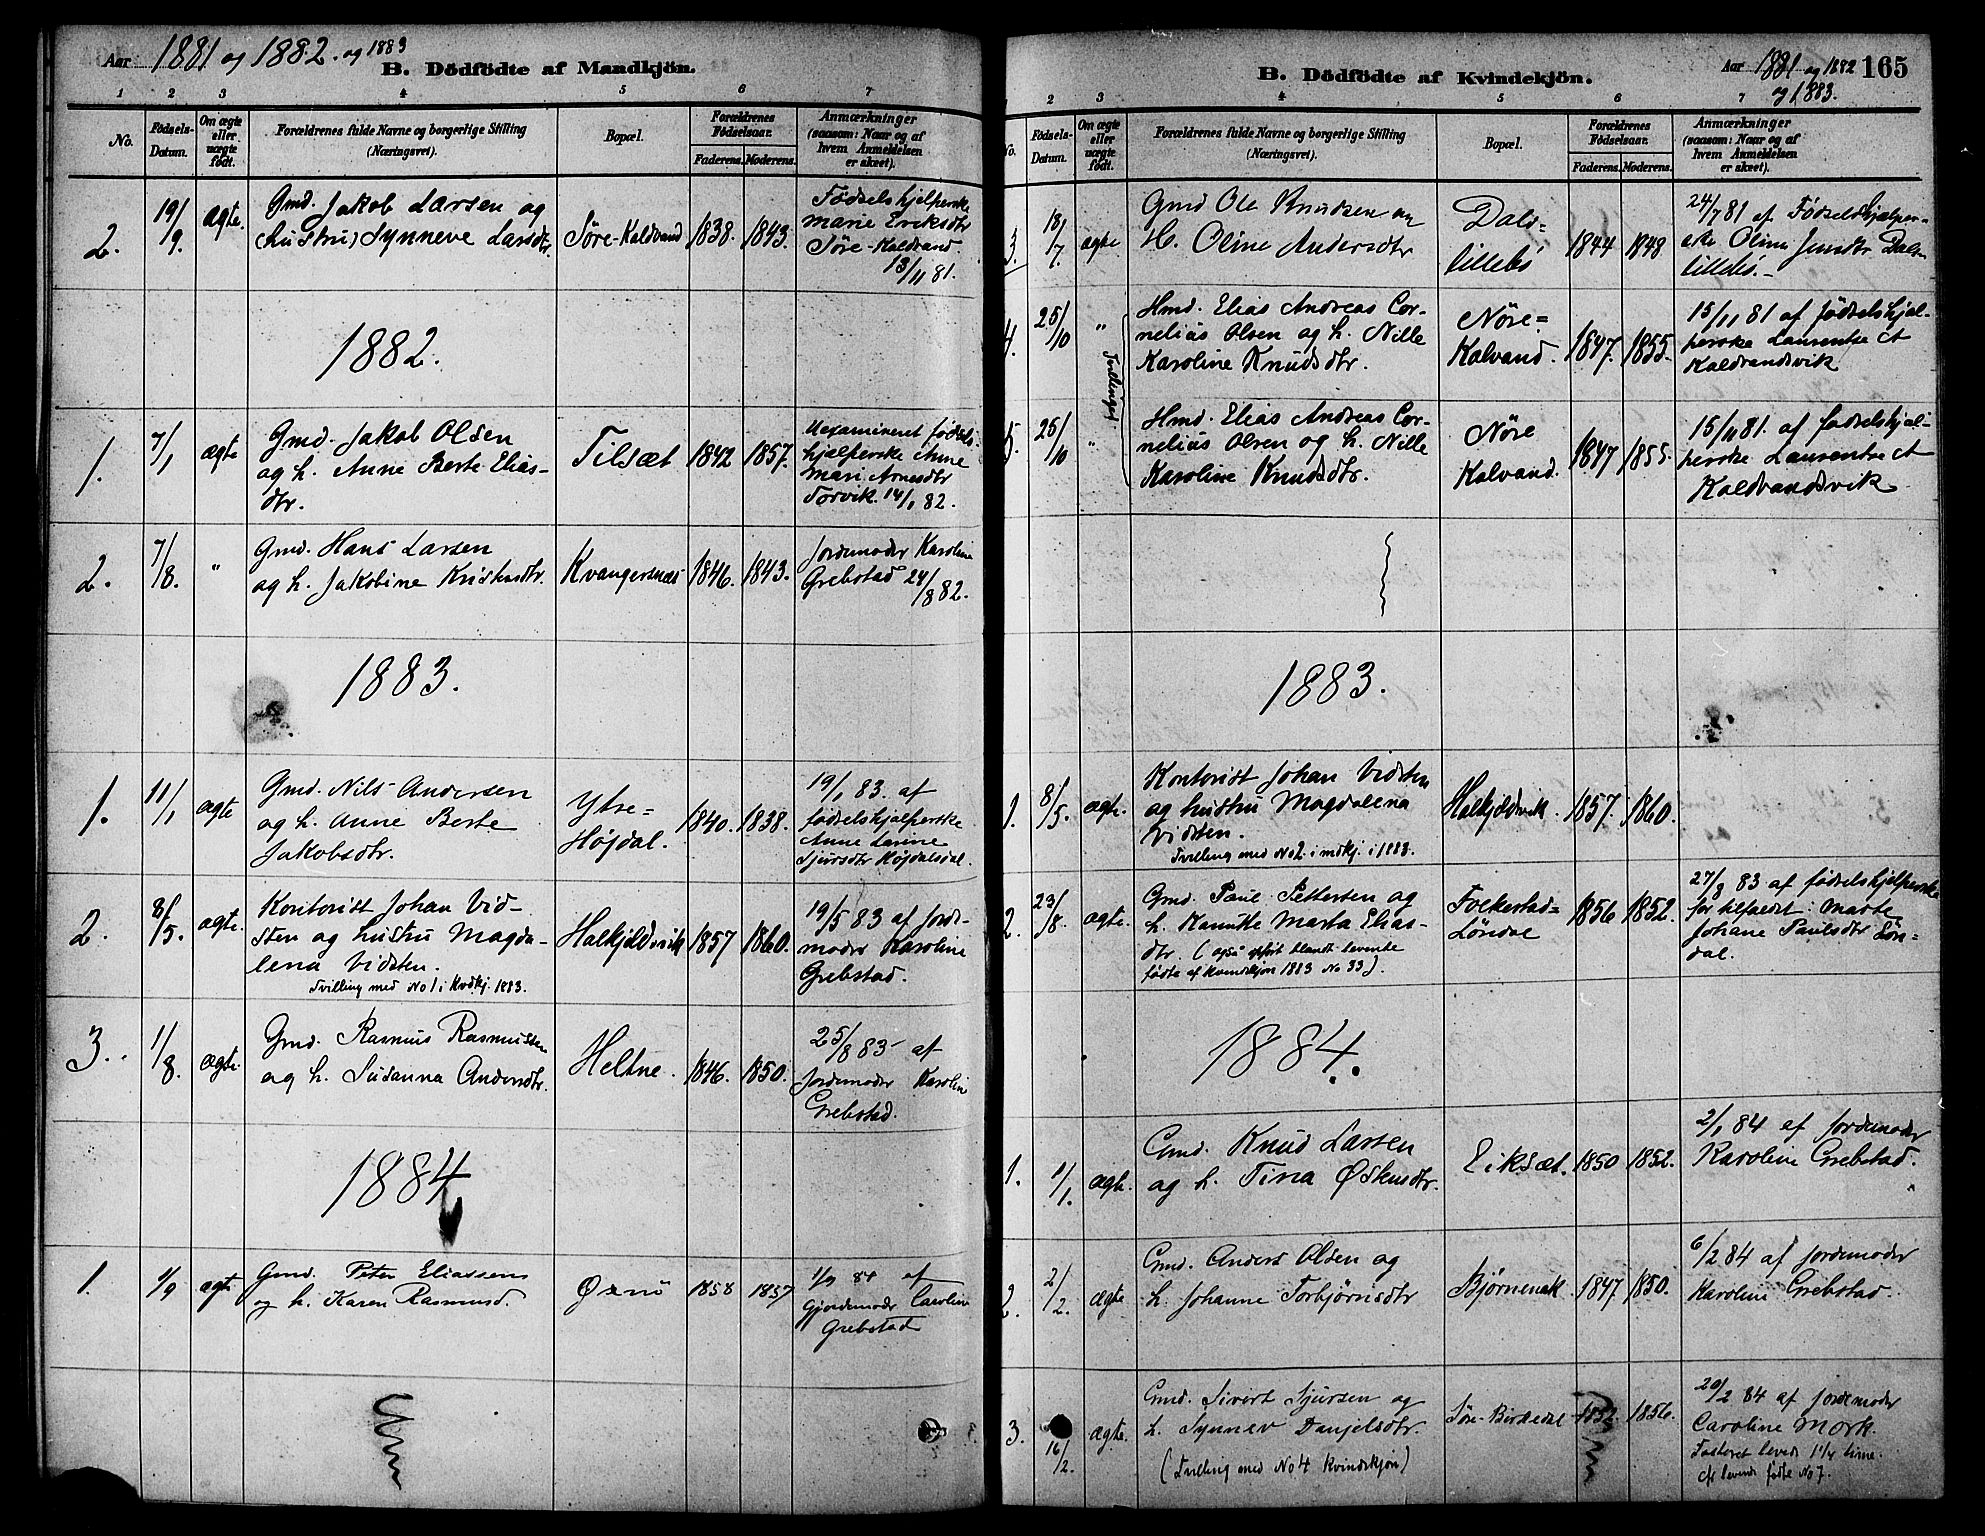 Aar 1881 og 1882. og 1883
B. Dödfödte af Mandkjön.
1 2 3 4 5 6 7
No.
Födsels-
Datum.
Om ægte
eller
uægte
födt.
Forældrenes fulde Navne og borgerlige Stilling
(Næringsvei).
Bopæl.
Forældrenes
Födselsaar.
Faderens. Moderens.
Anmærkninger
(saasom: Naar og af
hvem Anmeldelsen
er skeet).
2. 19/9. ægte.
Gmd. Jakob Larsen og
(hustru) Synneve Larsdtr.
Søre-Kaldvand 1838. 1843.
Födselshjelperske
Marie Eriksdtr
Søre-Kaldvand
13/11 81.
1882.
1. 7/1 ægte
Gmd. Jakob Olsen
og h. Anne Berte Elias-
dtr.
Tilsæt 1842 1857.
Uexamineret fødsels-
hjælperske Anne
Mari Arnesdtr
Torvik. 14/1 82.
2. 7/8. "
Gmd. Hans Larsen
og h. Jakobine Kristensdtr.
Kvangersnæs 1846. 1843.
Jordemoder Karoline
Grebstad 24/8 82.
1883.
1. 11/1 ægte
Gmd. Nils Andersen
og h. Anne Berte
Jakobsdtr.
Ytre=
Højdal. 1840. 1838.
19/1 83. af
fødselshjælperske
Anne Larine
Sjursdtr Højdalsdal.
2. 8/5. ægte.
Kontorist Johan Vid-
sten og hustru Magda-
lena Vidsten.
Tvilling med No 1 i Kvdkj. 1883.
Halkjeldsvik 1857 1860.
19/5 83 af Jorde-
moder Karoline
Grebstad.
3. 1/8. ægte.
Gmd. Rasmus Rasmussen
og h. Susanna Andersdtr.
Heltne. 1846. 1850.
25/8 83 af
Jordemoder Karoline
Grebstad.
1884
1. 1/9 ægte
Gmd. Peter Eliassen
og h. Karen Rasmusd.
1858 1857
1/9 84 af
Gjordemoder Caroline
Grebstad
Aar 1881 og 1882 165
og 1883.
B. Dödfödte af Kvindekjön.
1 2 3 4 5 6 7
No.
Födsels-
Datum.
Om ægte
eller
uægte
födt.
Forældrenes fulde Navne og borgerlige Stilling
(Næringsvei).
Bopæl.
Forældrenes
Födselsaar.
Faderens. Moderens.
Anmærkninger
(saasom: Naar og af
hvem Anmeldelsen
er skeet).
3. 18/7 ægte
Gmd Ole Knudsen og
H. Oline Andersdtr
Dals=
lillebø 1844 1848
24/7 81 af Födselshjælper-
ske Oline Jensdtr Dals-
lillebø.
4. 25/10 " Tvillinger
Hmd. Elias Andreas Cor-
nelius Olsen og h. Nille
Karoline Knudsdtr.
Nøre=
Kalvand. 1847. 1855.
15/11 81 af fødselshjæl-
perske Laurentse
Kaldvandsvik
5. 25/10 "
Hmd. Elias Andreas Cor-
nelius Olsen og h. Nille
Karoline Knudsdtr.
Nøre
Kalvand. 1847 1855.
15/11 81. af fødselshjæl-
perske Laurentse
Kaldvandsvik
1883.
1. 8/5. ægte.
Kontorist Johan Vidsten
og hustru Magdalena
Vidsten.
Tvilling med No 2 i mdkj. i 1883.
Halkjeldsvik. 1857. 1860.
2. 23/8. ægte.
Gmd. Paul Pettersen og
h. Hannike Marta Elias-
dtr. (også opført blandt levende
fødte af Kvindekjøn 1883 No 33).
Folkestad=
Løndal 1856 1852.
27/8 83 af fødselshjelperske
for tilfældet: Marte
Johane Paulsdtr Løn=
dal.
1884.
1. 1/1. ægte.
Gmd. Knud Larsen
og h. Tina Øskensdtr.
Eiksæt. 1850 1852.
2/1 84 af Jordemoder
Karoline Grebstad.
2. 2/2. ægte
Gmd. Anders Olsen og
h. Johanne Torbjørnsdtr
Bjørnenak 1847 1850.
6/2 84 af Jordemoder
Karoline Grebstad.
3. 16/2. ægte.
Gmd. Sivert Sjursen og
h. Synnev Danjelsdtr.
(Tvilling med No 4 Kvindekjøn)
Søre-Birkedal 1852. 1856.
20/2 84 af Jordemoder
Caroline Mork.
Fosteret levede 1 1/4 time.
cfr levende fødte No 7.